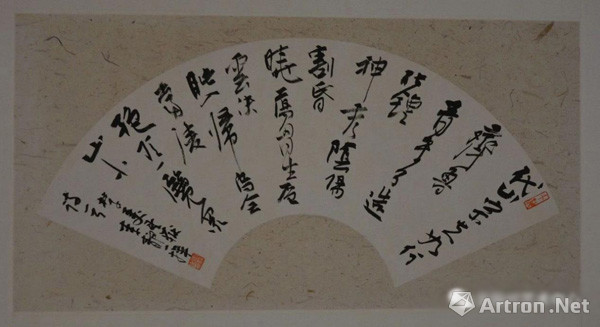 岱宗夫如何
齊魯
青未了造
化鐘
神秀陰陽
割昏
曉蕩胸生層
雲決
眦入歸鳥會
當凌
絕頂一覽眾
山小
Artron.Net